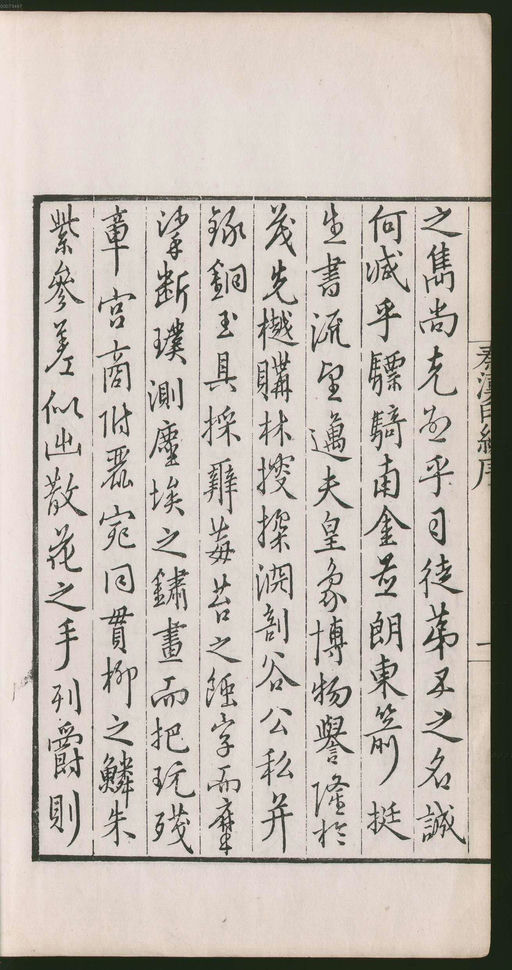 之雋尚克忝乎司徒第五之名誠
何减乎驃騎南金並朗東箭挺
生書流望邁夫皇象博物譽隆於
茂先樾購林搜探淵剖谷公私并
錄銅玉具採辨莓苔之蝕字而摩
挲斷璞測塵埃之鏽畫而把玩殘
章宮商附麗宛同貫柳之鱗朱
紫參差似出散花之手列爵則
秦漢印統序
一